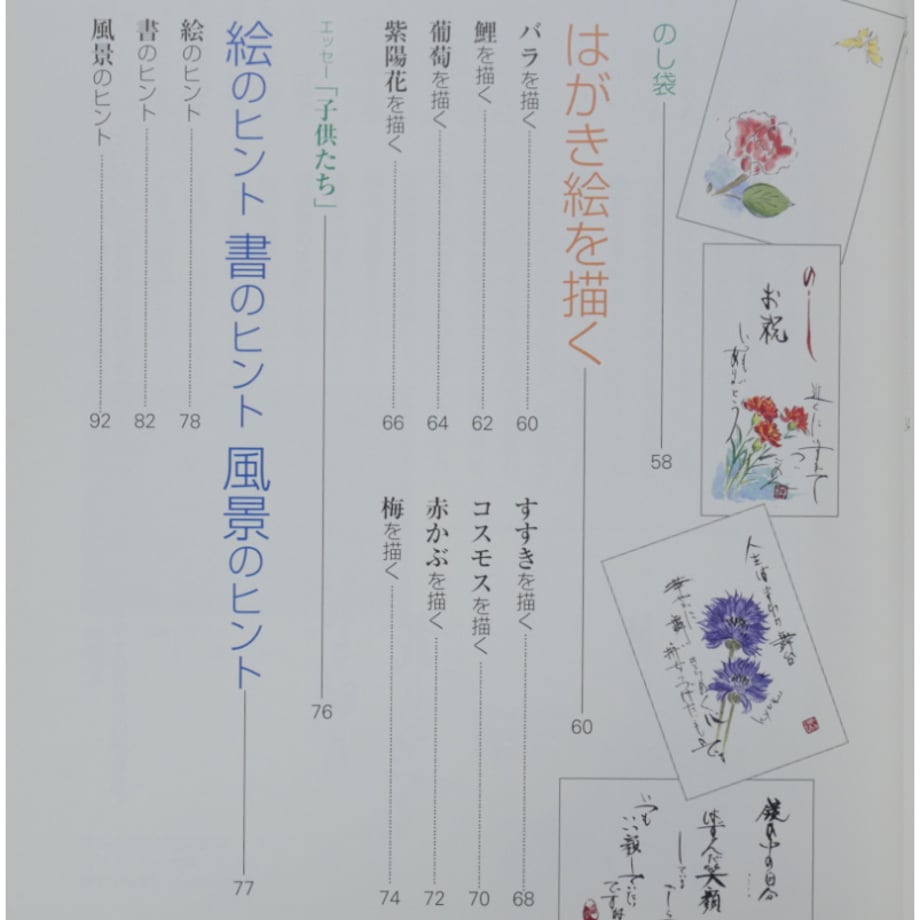 のし袋 58
はがき絵を描く 60
バラを描く 60
鯉を描く 62
葡萄を描く 64
紫陽花を描く 66
すすきを描く 68
コスモスを描く 70
赤かぶを描く 72
梅を描く 74
エッセー「子供たち」 76
絵のヒント 書のヒント 風景のヒント 77
絵のヒント 78
書のヒント 82
風景のヒント 92
のし
お祝
鏡の中の自分
はずんだ笑顔
いつも
いい顔していたい
ですね